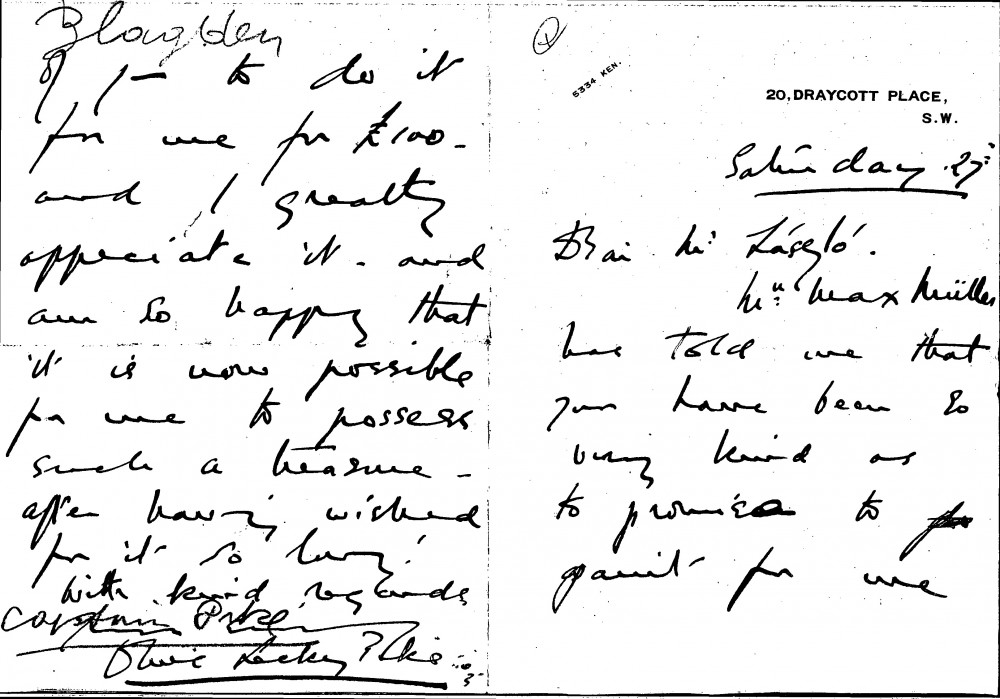 5334 KEN.
20, DRAYCOTT PLACE,
S.W.
Saturday. 27th
Dear Mr László.
Mrs Max Müller
has told me that
you have been so
very kind as
to promise to
paint for me
Blagden
of
to do it
for me for £100-
and I greatly
appreciate it - and
am so happy that
it is now possible
for me to possess
such a treasure -
after having wished
for it so long!
With kind regards
Captain Pike
Olive Leckey Pike